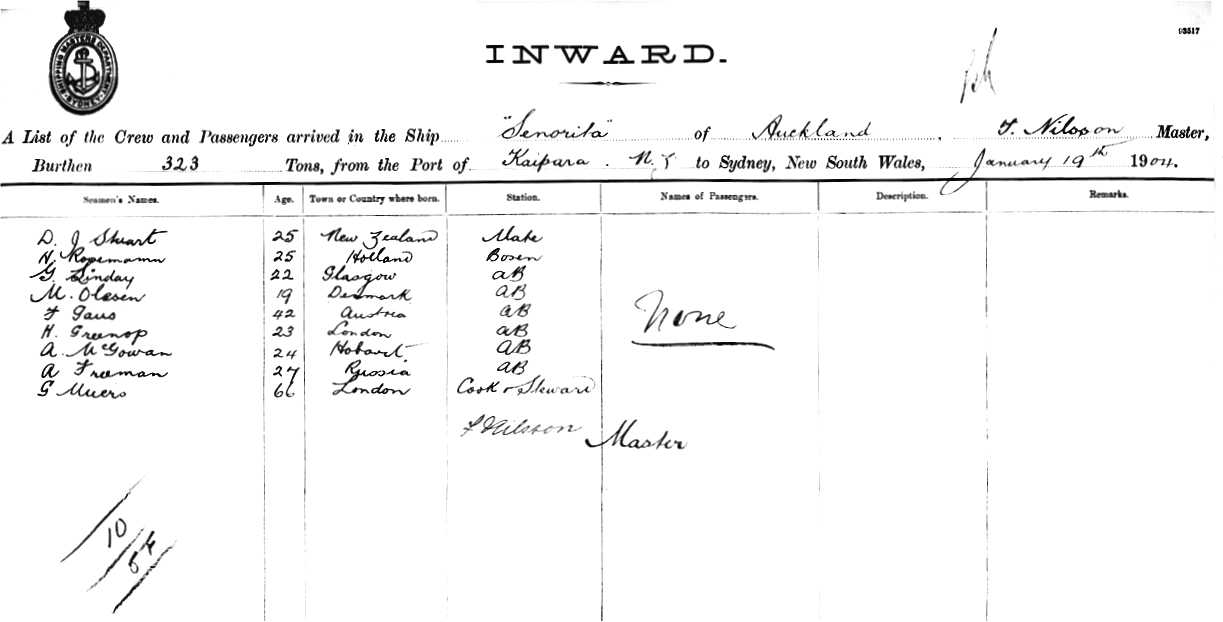 SHIPPING MASTERS DEPARTMENT SYDNEY
93517
INWARD.
A List of the Crew and Passengers arrived in the Ship "Senorita" of Auckland, F. Nilsson Master,
Burthen 323 Tons, from the Port of Kaipara. N.Z to Sydney, New South Wales, January 19th 1904.
Seamen's Names. Age. Town or Country where born. Station. Names of Passengers. Description. Remarks.
D. J Stuart 25 New Zealand Mate
H. Ropemann 25 Holland Bosen
G. Linday 22 Glasgow AB
M. Olesen 19 Denmark AB
F Gaus 42 Austria AB
None
H. Greenop 23 London AB
A. McGowan 24 Hobart AB
A Freeman 27 Russia AB
G Myers 66 London Cook & Steward
F Nilsson Master
10